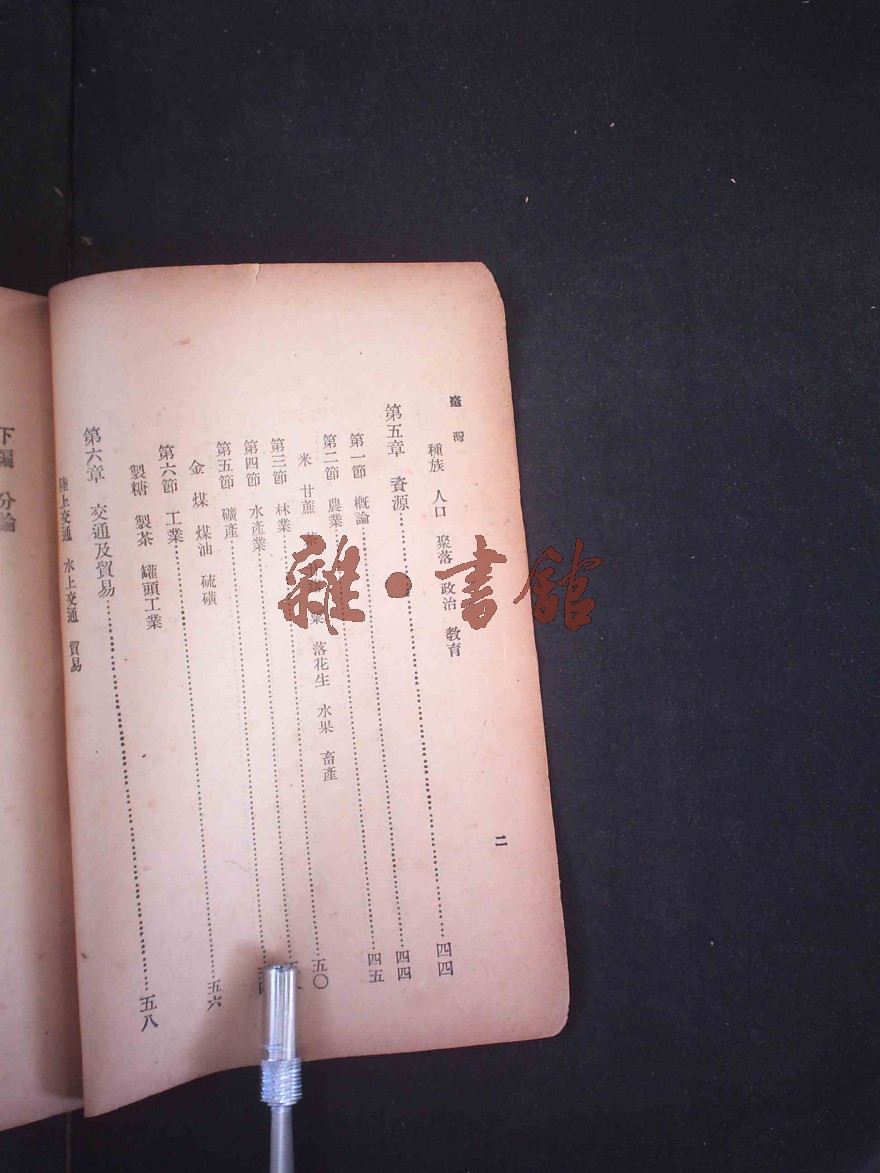 臺灣
二
種族 人口 聚落 政治 教育
第五章 資源……四四
第一節 概論……四四
第二節 農業……四五
米 甘蔗 落花生 水果 畜產
第三節 林業……五〇
第四節 水產業……
第五節 礦產……
金 煤 煤油 硫磺
第六節 工業……五六
製糖 製茶 罐頭工業
第六章 交通及貿易……五八
陸上交通 水上交通 貿易
下編 分論
雜·書館